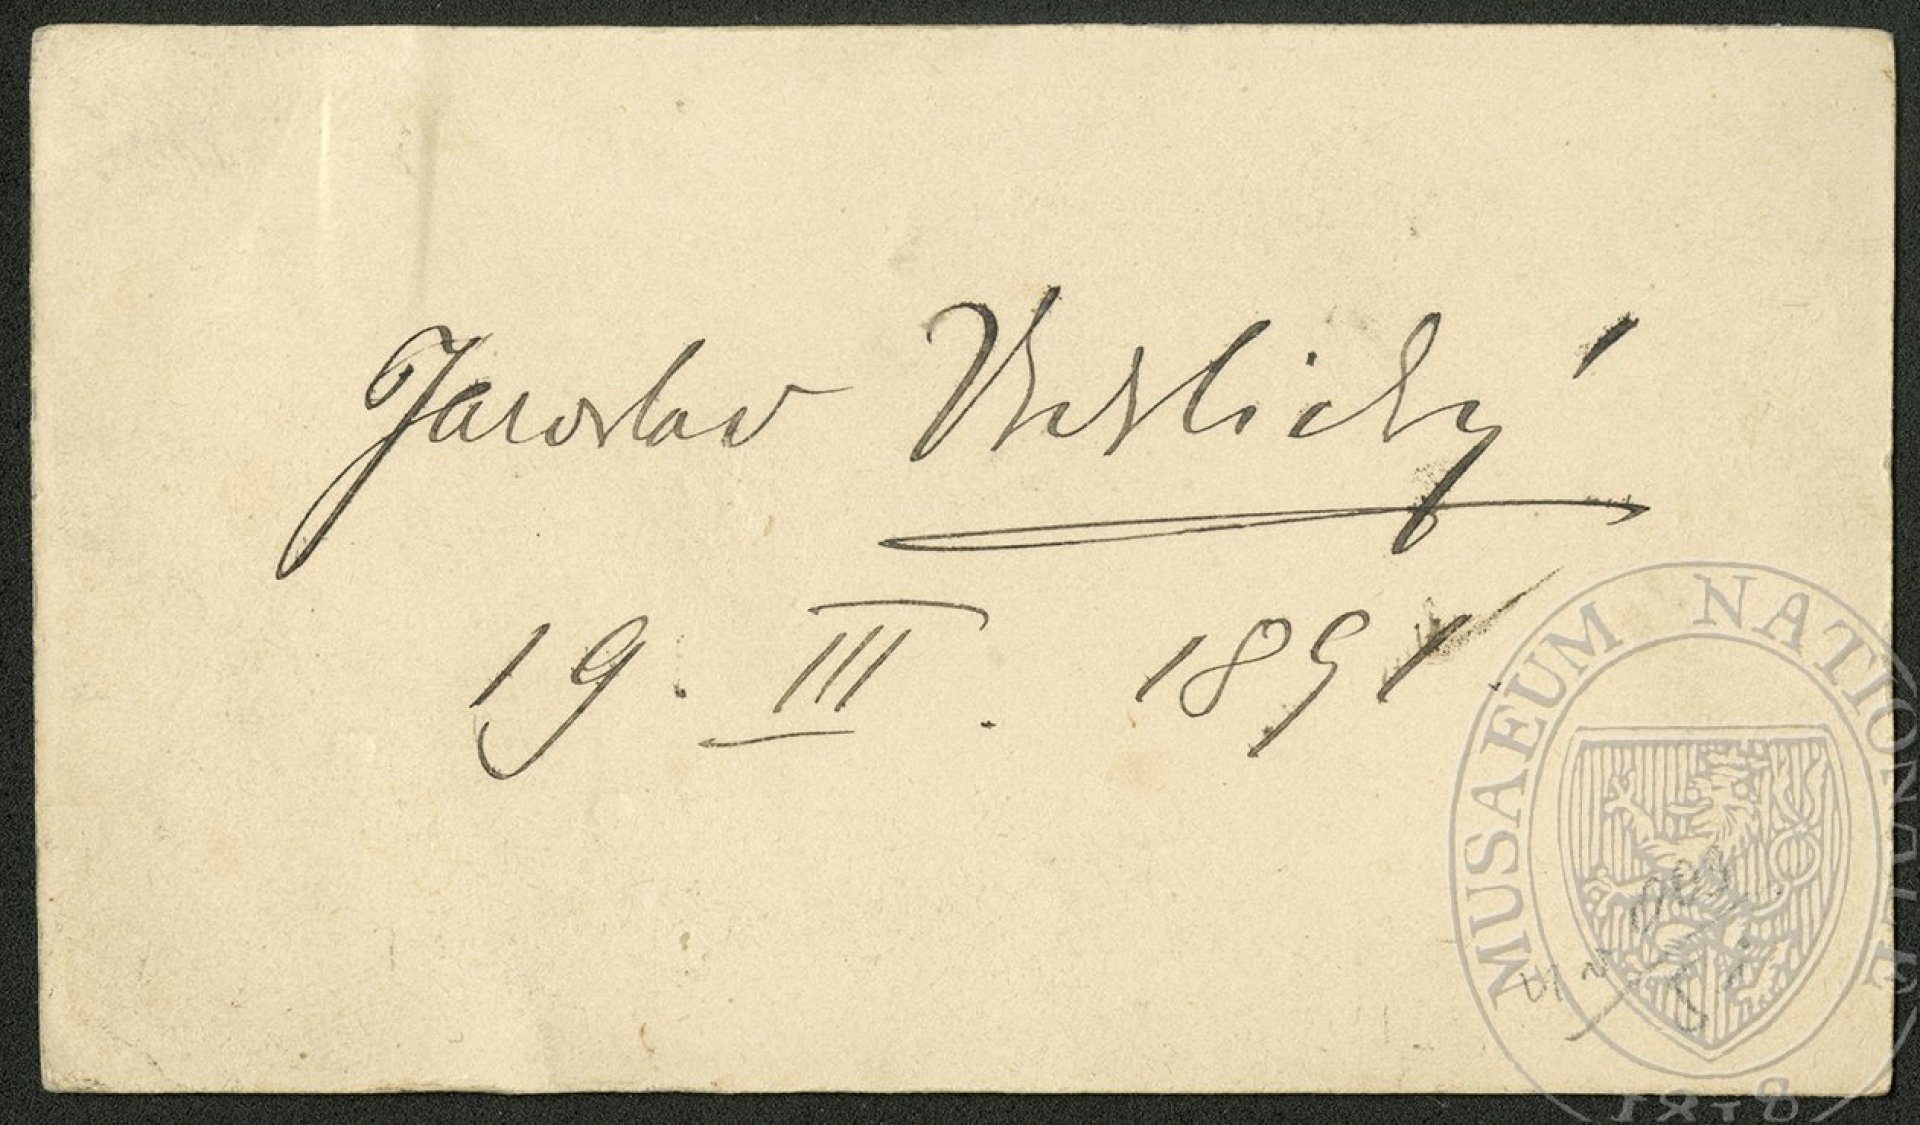 Jaroslav Vrchlický
19. III. 1891.
MUSAEUM NATIONALE
1818